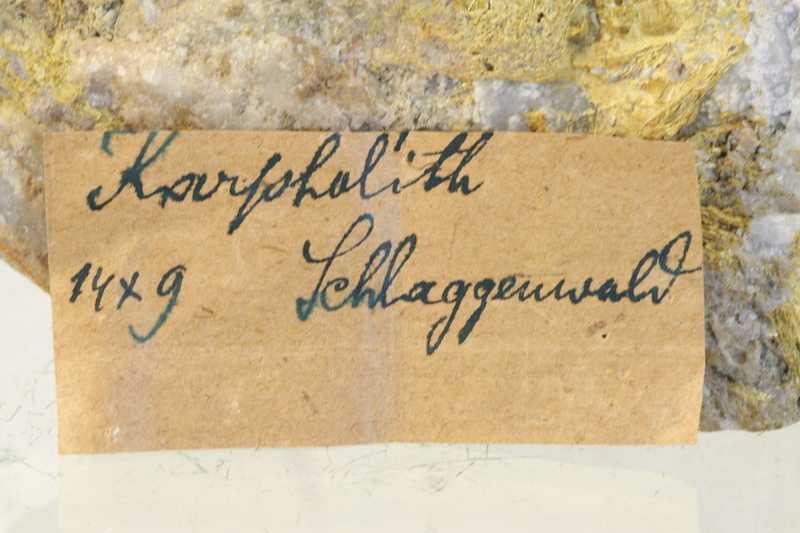 Karpholith
14x9 Schlaggenwald